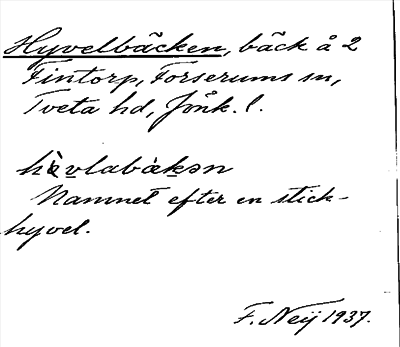 Hyvelbäcken, bäck å 2
Fintorp, Forserums sn,
Tveta hd, Jönk. l.
hὰvlabὰkən
Namnet efter en stick-
hyvel.
F. Neij 1937.